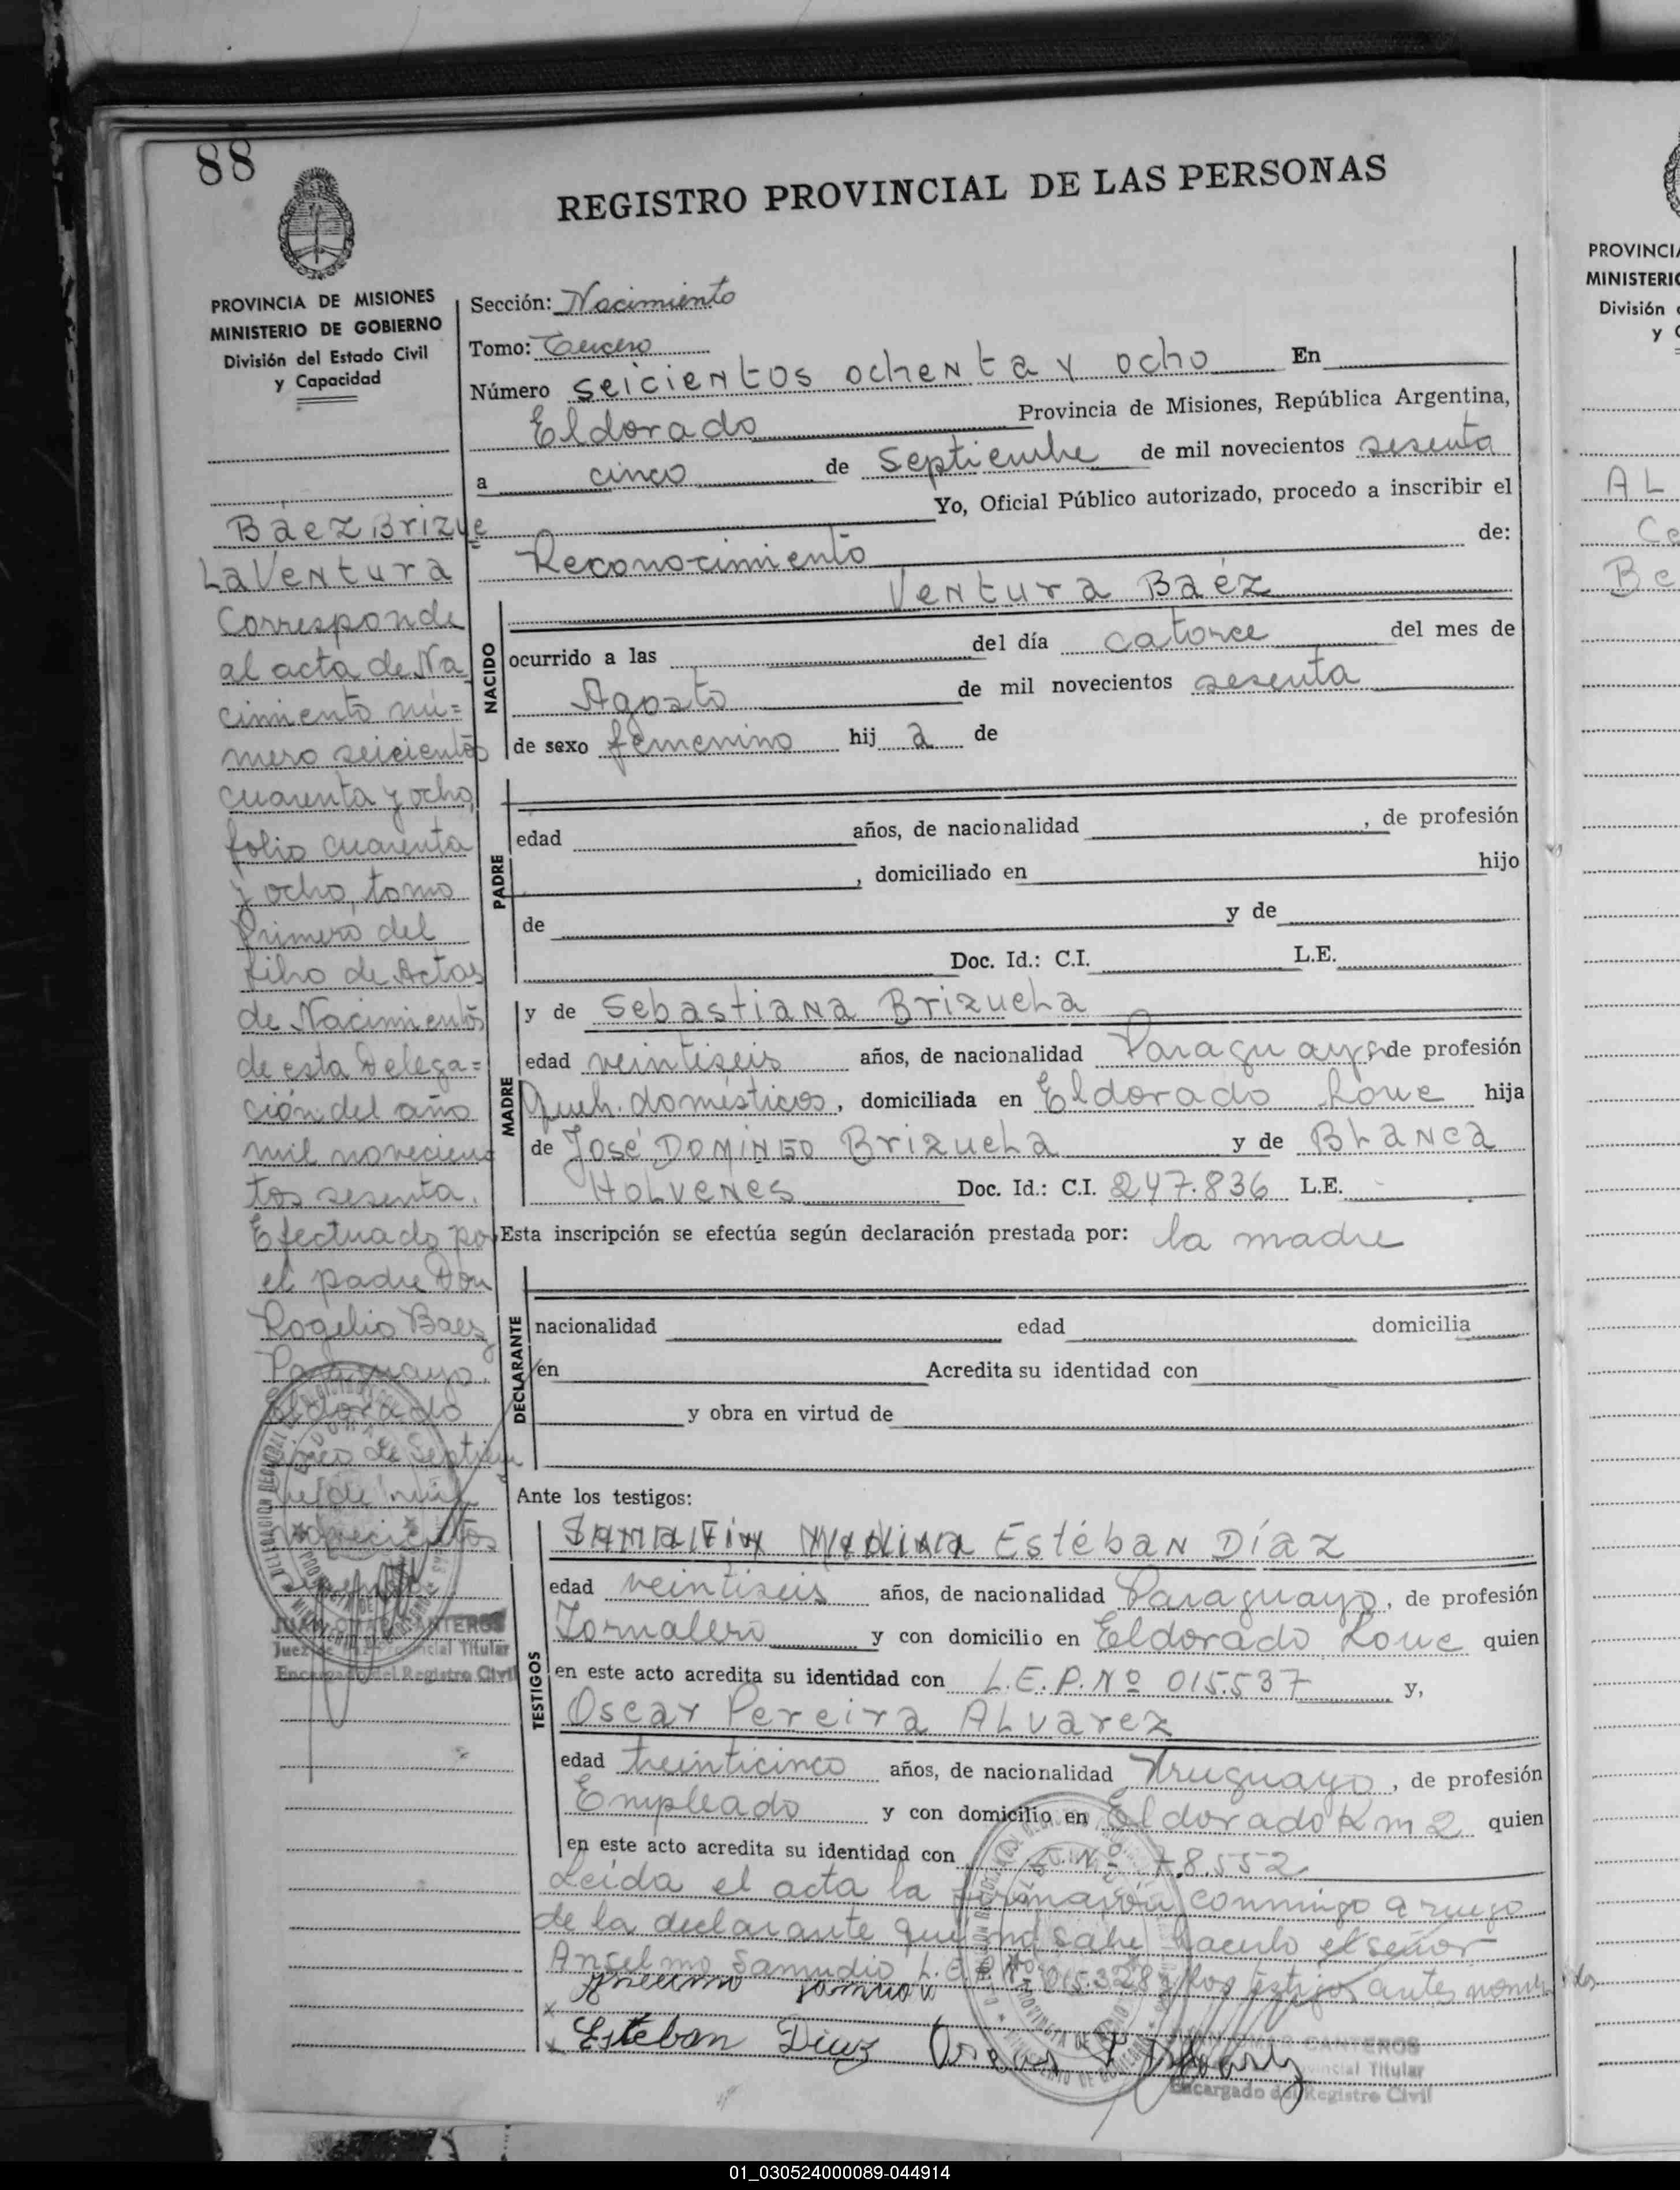 88
REGISTRO PROVINCIAL DE LAS PERSONAS
PROVINCIA DE MISIONES
MINISTERIO DE GOBIERNO
División del Estado Civil
y Capacidad
Báez Brizue
La Ventura
Corresponde
al acta de Na
cimiento nú=
mero seicientos
cuarenta y ocho,
folio cuarenta
y ocho, tomo
Primero del
Libro de Actas
de Nacimientos
de esta Delega=
ción del año
mil novecien
tos sesenta.
Efectuado por
el padre Don
Rogelio Baez
Paraguayo.
Eldorado
de Septiem
de mil
novecientos
JUAN OMAR CANTEROS
Juez de Provincial Titular
Encargado del Registro Civil
Sección: Nacimiento
Tomo: Tercero
Número seicientos ochenta y ocho En
Eldorado Provincia de Misiones, República Argentina,
a cinco de Septiembre de mil novecientos sesenta
Yo, Oficial Público autorizado, procedo a inscribir el
Reconocimiento de:
NACIDO
Ventura Baéz
ocurrido a las del día catorce del mes de
Agosto de mil novecientos sesenta
de sexo femenino hij a de
PADRE
edad años, de nacionalidad , de profesión
, domiciliado en hijo
de y de
Doc. Id.: C.I. L.E.
MADRE
y de Sebastiana Brizuela
edad veintiseis años, de nacionalidad Paraguaya, de profesión
Queh. domésticos, domiciliada en Eldorado hija
de José Domingo Brizuela y de Blanca
Holvenes Doc. Id.: C.I. 247.836 L.E.
Esta inscripción se efectúa según declaración prestada por: la madre
DECLARANTE
nacionalidad edad domicilia
en Acredita su identidad con
y obra en virtud de
Ante los testigos:
TESTIGOS
Estéban Díaz
edad veintiseis años, de nacionalidad Paraguayo, de profesión
Jornalero y con domicilio en Eldorado quien
en este acto acredita su identidad con L.E.P. Nº 015.537 y,
Oscar Pereira Alvarez
edad treinticinco años, de nacionalidad Uruguayo, de profesión
Empleado y con domicilio en Eldorado Km 2 quien
en este acto acredita su identidad con Nº 78.552
Leída el acta la firmaron conmigo a ruego
de la declarante que no sabe hacerlo el señor
Anselmo Samudio L.E. 015.328 y los testigos antes nombrados
Anselmo Samudio
Esteban Diaz Oscar P. Alvarez
CANTEROS
Provincial Titular
Encargado del Registro Civil
PROVINCIA
MINISTERIO
División
y
AL
Ce
Be
01_030524000089-044914